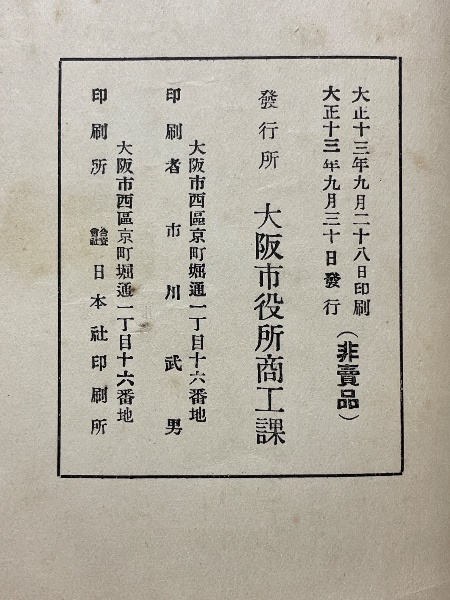 大正十三年九月二十八日印刷
大正十三年九月三十日發行
（非賣品）
發行所 大阪市役所商工課
大阪市西區京町堀通一丁目十六番地
印刷者 市川武男
大阪市西區京町堀通一丁目十六番地
印刷所 合資會社 日本社印刷所